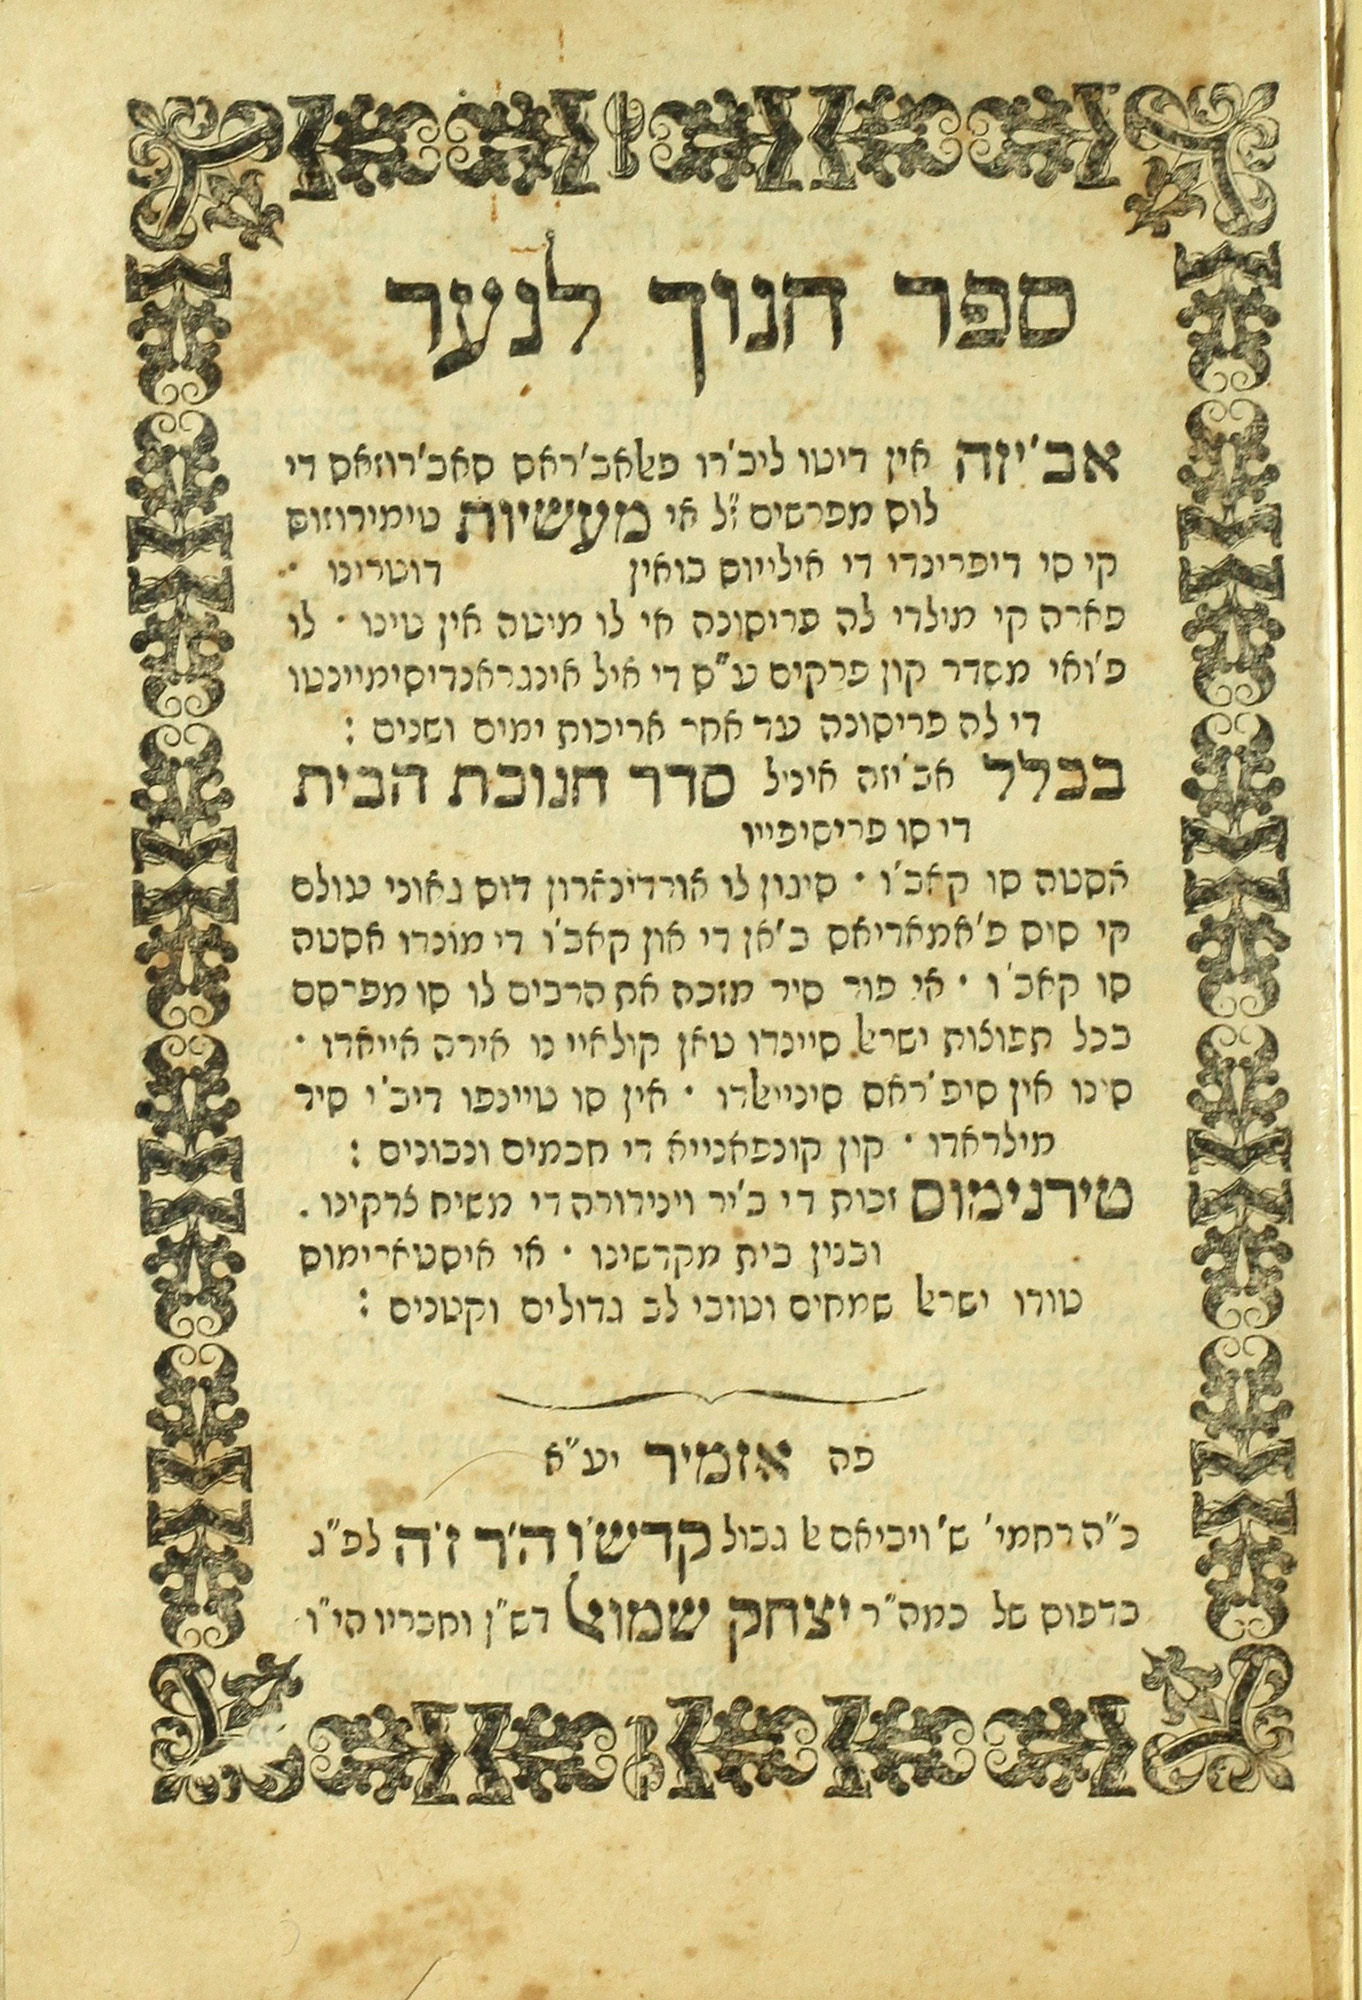 ספר חנוך לנער
אב'יזה אין דיטו ליב'רו פﭏאב'ראס סאב'רוזאס די
לוס מפרשים ז"ל אי מעשיות טימירוזוס
קי סי דיפרינדי די אילייוס בואין דוטרינו •
פארה קי מילדי לה פריסונה אי לו מיטה אין טינו • לו
פ'ואי מסדר קון פרקים ע"ס די איל אינגראנדיסימיינטו
די לה פריסונה עד אחר אריכות ימים ושנים :
בכלל אב'יזה איניל סדר חנוכת הבית
די סו פריסיפייו
אסטה סו קאב'ו • סיגון לו אורדינארון דוס גאוני עולם
קי סיס פ'אמאריאס ב'אן די און קאב'ו די מונדו אסטה
סו קאב'ו • אי פור סיר מזכה את הרבים לו סו מפרסם
בכל תפוצות ישרﭏ סיינדו טאן קולאיי נו אירה אייארו •
סינו אין סיפ'ראס סינייﭏדו • אין סו טיינפו דיב'י סיר
מילדאדו • קון קונפאנייא די חכמים ונבונים :
טירנימוס זכות די ב'יר וינידורה די משיח צדקינו .
ובנין בית מקדשינו • אי איסטארימוס
טודו ישרﭏ שמחים וטובי לב גדולים וקטנים :
פה אזמיר יע"א
כ"ה רחמי' ש' ויביאם ﭏ גבול קדשו ה'ר ז'ה לפ"ג
בדפוס של כמה"ר יצחק שמוﭏ דש"ן וחבריו הי"ו